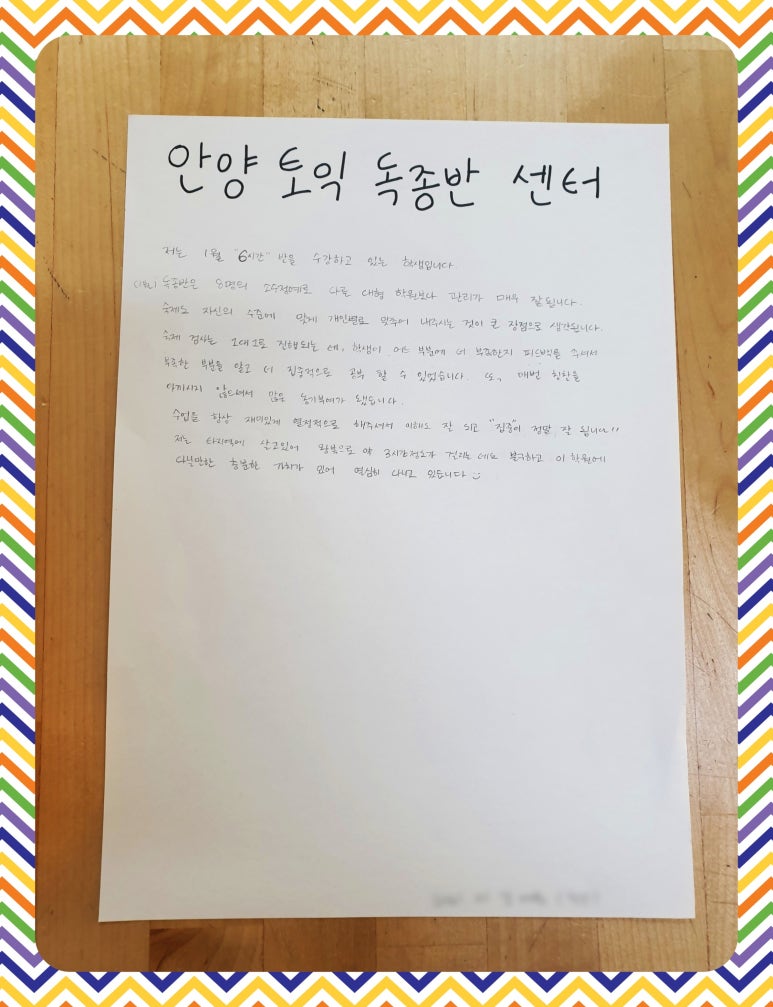 안양 토익 독종반 센터
저는 1월 "6시간" 반을 수강하고 있는 학생입니다.
(1월) 독종반은 8명의 소수정예로 다른 대형 학원보다 관리가 매우 잘 됩니다.
숙제도 자신의 수준에 맞게 개인별로 맞추어 내주시는 것이 큰 장점으로 생각됩니다.
숙제 검사는 1대1로 진행되는 데, 학생이 어느 부분에 더 부족한지 피드백을 주셔서
부족한 부분을 알고 더 집중적으로 공부 할 수 있었습니다. 또, 매번 칭찬을
아끼시지 않으셔서 많은 동기부여가 됐습니다.
수업을 항상 재미있게 열정적으로 해주셔서 이해도 잘 되고 "집중"이 정말 잘 됩니다!!
저는 타지역에 살고있어 왕복으로 약 3시간정도가 걸리는 데도 불구하고 이 학원에
다닐만한 충분한 가치가 있어 열심히 다니고 있습니다